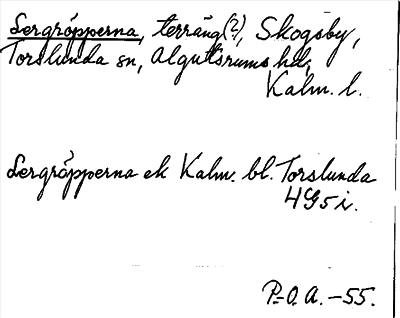 Lergröpperna, terräng(?), Skogsby,
Torslunda sn, Algutsrums hd,
Kalm. l.
Lergröpperna ek Kalm. bl. Torslunda
4G5i.
P.-O.A. -55.